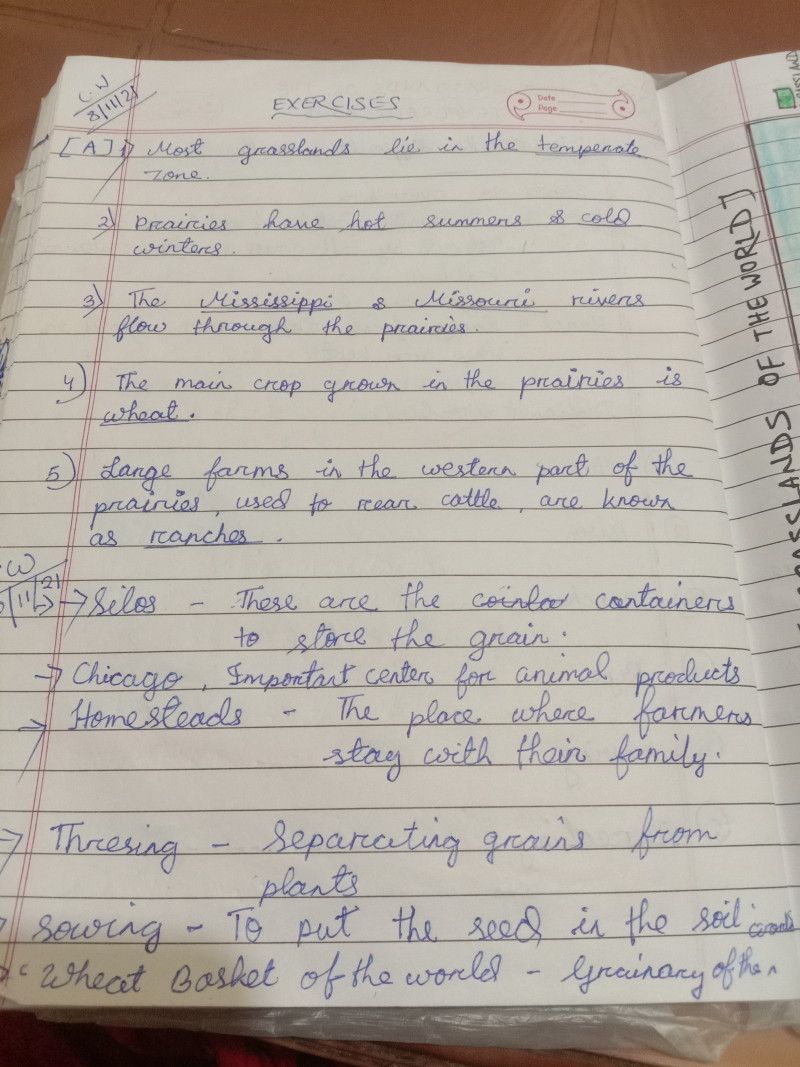 C.W
8/11/21
EXERCISES
Date
Page
[A] 1) Most grasslands lie in the temperate
zone.
2) Prairies have hot summers & cold
winters.
3) The Mississippi & Missouri rivers
flow through the prairies.
4) The main crop grown in the prairies is
wheat.
5) Large farms in the western part of the
prairies, used to rear cattle, are known
as ranches.
W
11/21
→ Silos - These are the containers
to store the grain.
→ Chicago, Important center for animal products
→ Homesteads - The place where farmers
stay with their family.
→ Thresing - Separating grains from
plants
Sowing - To put the seed in the soil
"Wheat Basket of the world - Grainary of the
GRASSLANDS OF THE WORLD]